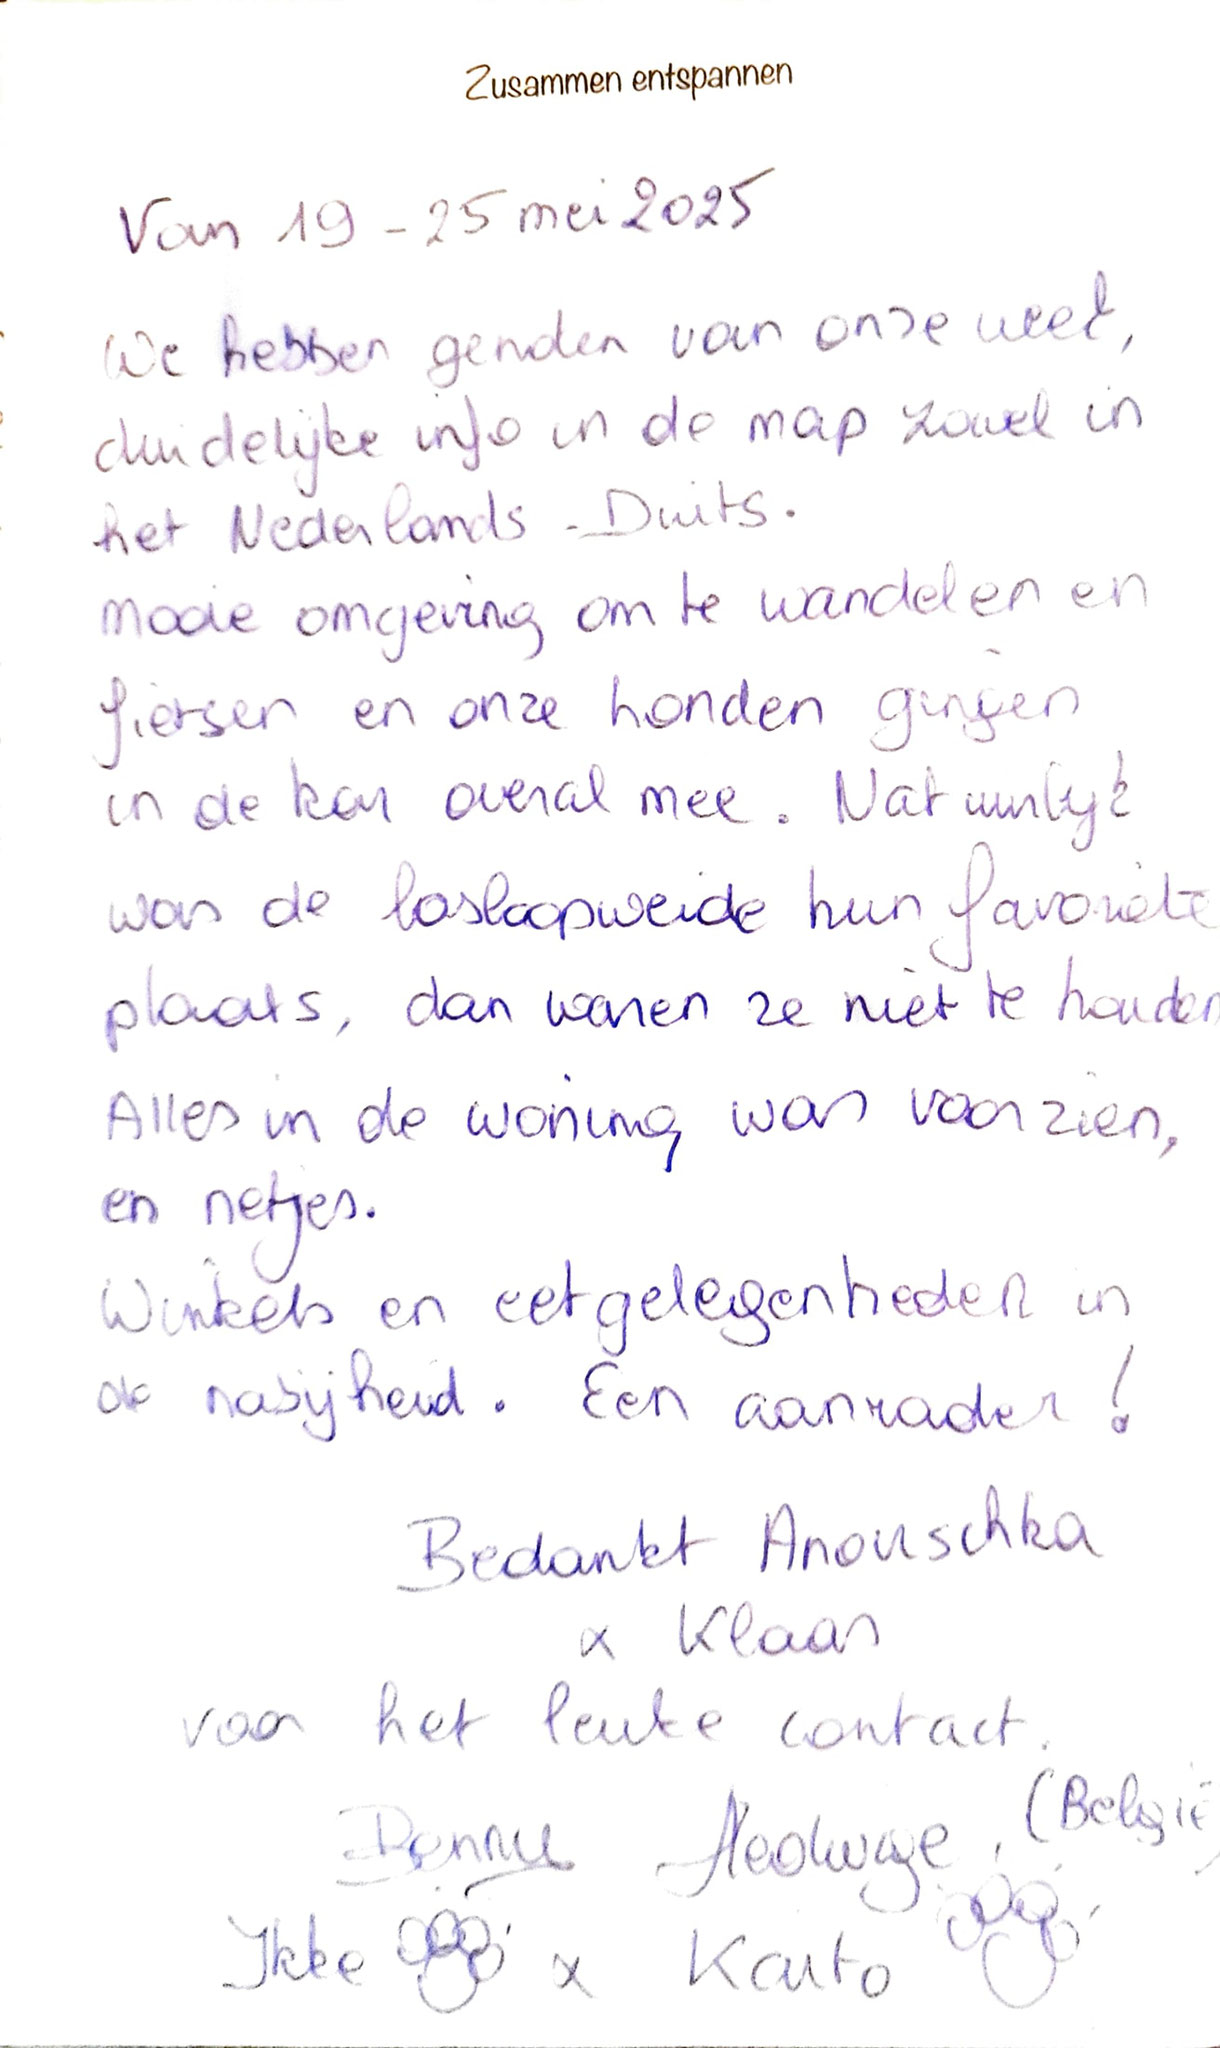 Zusammen entspannen
Van 19 - 25 mei 2025
We hebben genoten van onze week,
duidelijke info in de map zowel in
het Nederlands - Duits.
Mooie omgeving om te wandelen en
fietsen en onze honden gingen
in de kar overal mee. Natuurlijk
was de losloopweide hun favoriete
plaats, dan waren ze niet te houden
Alles in de woning was voorzien,
en netjes.
Winkels en eetgelegenheden in
de nabijheid. Een aanrader!
Bedankt Anouschka
& Klaas
voor het leuke contact.
(België)
Ikke & Kaito